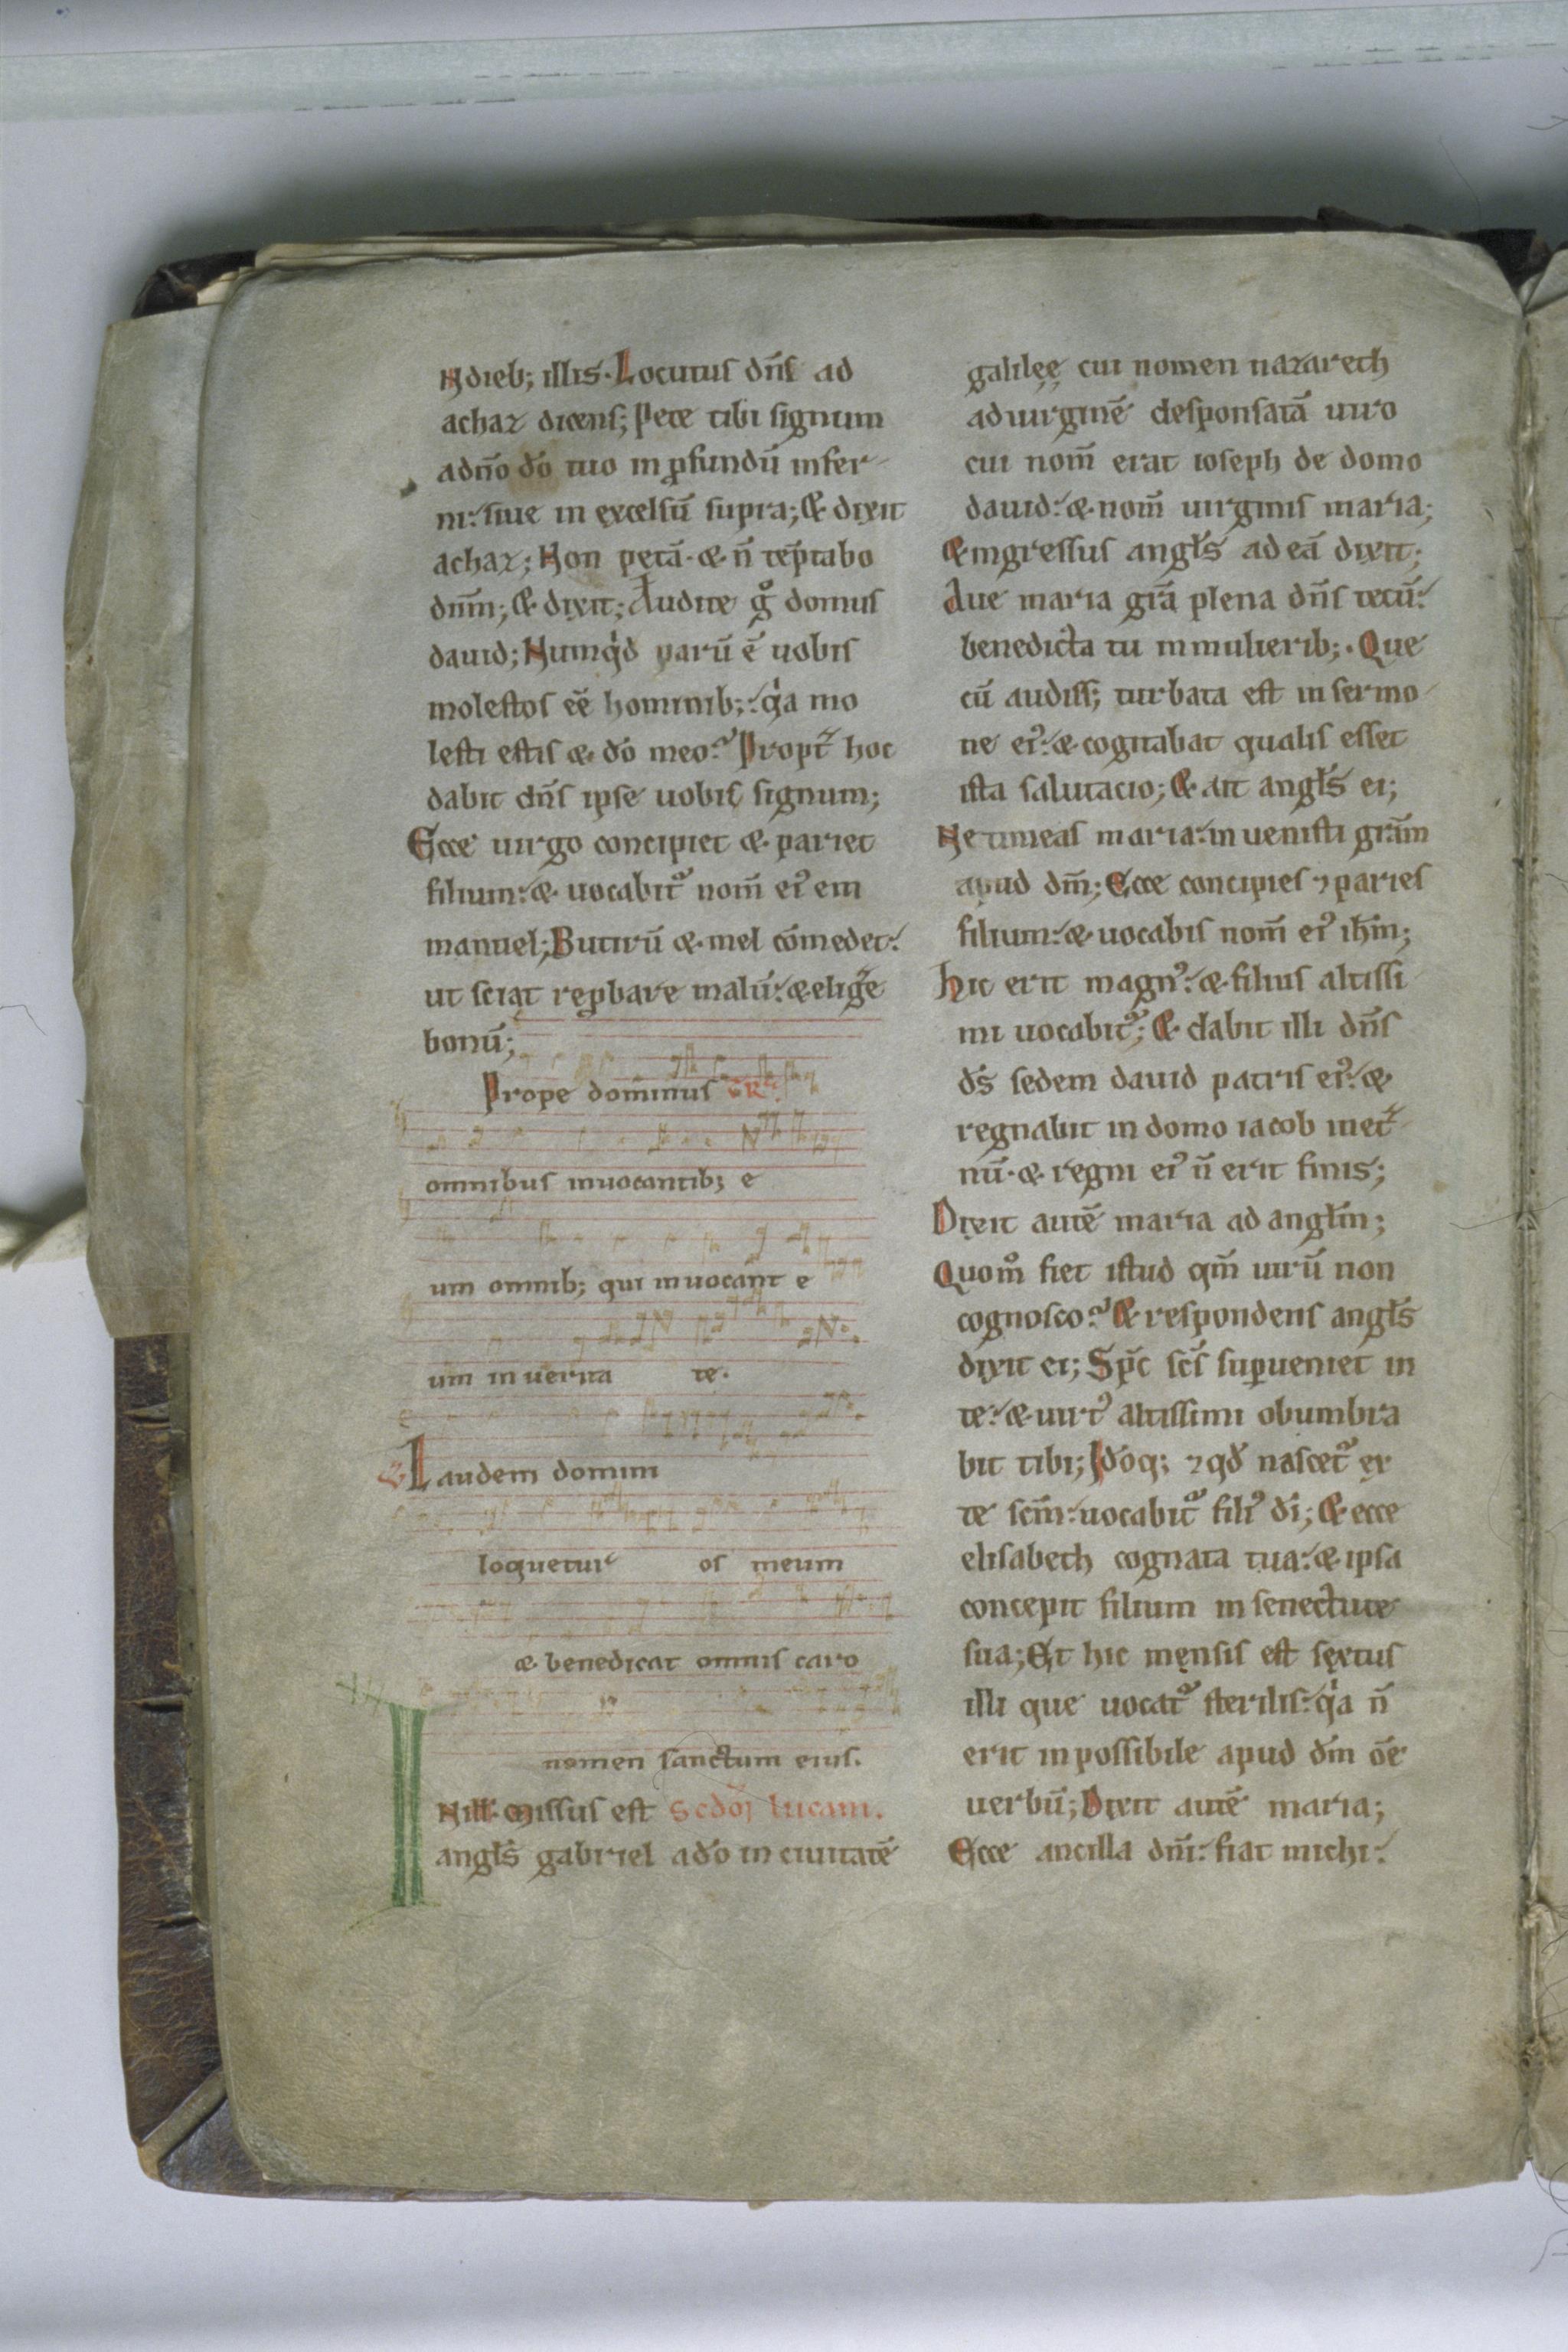 Ndieb; illis. Locutus dn̄s ad
achaz dicens; Pete tibi signum
adn̄o dō tuo in ꝓfundū infer-
ni: siue in excelsū supra; & dixit
achaz; Non petā. & n̄ tēptabo
dnm̄; & dixit; Audite gͦ domus
dauid; Numqͥd parū ē uobis
molestos eē hominib;: qͥa mo
lesti estis & dō meo? Propt̄ hoc
dabit dn̄s ipse uobis signum;
Ecce uirgo concipiet & pariet
filium: & uocabit᷑ nom̄ eiꝰ em
manuel; Butirū & mel cōmedet:
ut sciat reꝓbare malū: & eliḡe
bonū;
Prope dominus GR.
omnibus inuocantib; e
um omnib; qui inuocant e
um in uerita te.
V Laudem domini
loquetur os meum
& benedicat omnis caro
nomen sanctum eius.
IN ill. Missus est Scdm̄ lucam.
angl̄s gabriel adō in ciuitatē
galilęę cui nomen nazareth
ad uirginē desponsatā uiro
cui nom̄ erat ioseph de domo
dauid: & nom̄ uirginis maria;
& ingressus angl̄s ad eā dixit;
Aue maria grā plena dn̄s tecū:
benedicta tu in mulierib;. Que
cū audiss; turbata est in sermo-
ne eiꝰ: & cogitabat qualis esset
ista salutacio; & ait angl̄s ei;
Ne timeas maria: inuenisti grām
apud dm̄; Ecce concipies ⁊ paries
filium: & uocabis nom̄ eiꝰ ihm̄;
hic erit magnꝰ: & filius altissi
mi uocabit᷑; & dabit illi dn̄s
ds̄ sedem dauid patris eiꝰ: &
regnabit in domo iacob inet̄
nū. & regni eiꝰ n̄ erit finis;
Dixit autē maria ad anglm̄;
Quom̊ fiet istud qm̄ uirū non
cognosco? & respondens angl̄s
dixit ei; Spc̄ scs̄ suꝑueniet in
te: & uirtꝰ altissimi obumbra
bit tibi; Idōq; ⁊ qd̄ nascet᷑ ex
te scm̄: uocabit᷑ filiꝰ dī; & ecce
elisabeth cognata tua: & ipsa
concepit filium in senectute
sua; Et hic mensis est sextus
illi que uocat᷑ sterilis: qͥa n̄
erit inpossibile apud dm̄ ōe
uerbū; Dixit autē maria;
Ecce ancilla dn̄i: fiat michi: